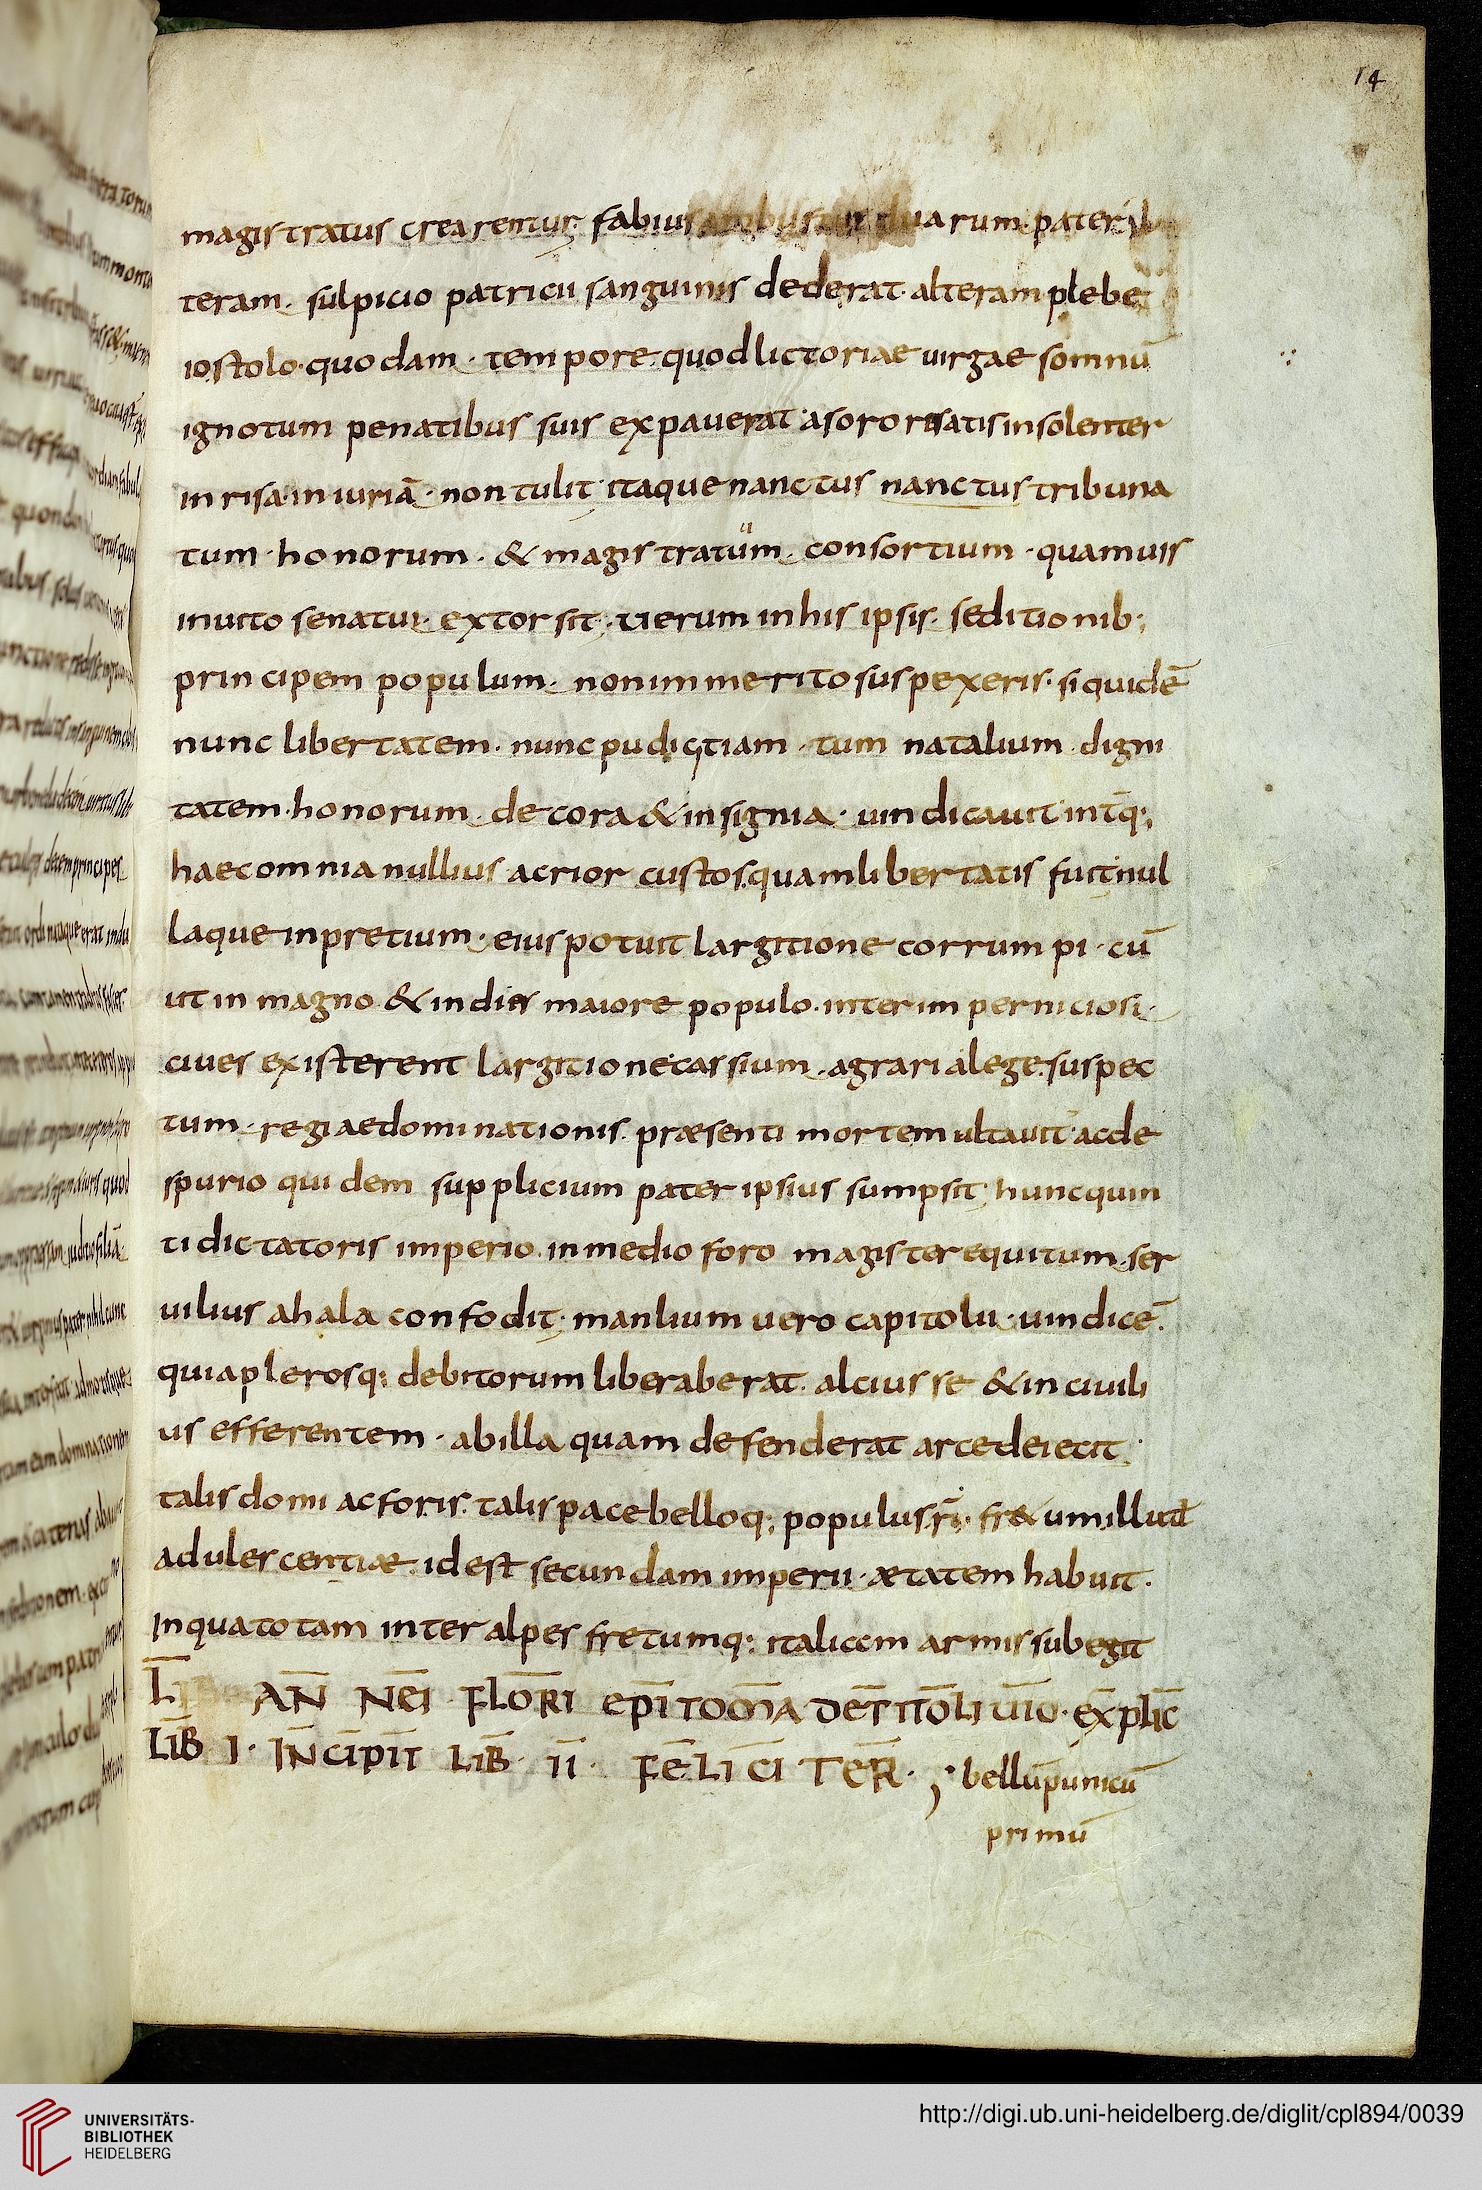 14
magistratus crearentur. fabius ambustus duarum pater
teram. sulpicio patricii sanguinis dederat. alteram plebe
io stolo. quodam. tempore. quod lictoriae uirgae somnū
ignotum penatibus suis expauerat. a sorore satis insolenter
inrisa. iniuriā. non tulit. itaque nanctus nanctus tribuna
tum. honorum. & magistratuum. consortium. quamuis
inuito senatui. extorsit. uerum in his ipsis. seditionib;
principem populum. non immerito suspexeris. siquidē
nunc libertatem. nunc pudicitiam. tum natalium. digni
tatem. honorum. decora & insignia. uindicauit. intq̄;
haec omnia nullius acrior custos. quam libertatis fuit. nul
laque in pretium. eius potuit largitione corrumpi. cū
ut in magno & in dies maiore populo. interim perniciosi.
ciues existerent largitione cassium. agraria lege. suspec
tum. regiae dominationis. præsenti mortem ultauit. ac de
spurio quidem supplicium pater ipsius sumpsit. hunc quin
ti dictatoris imperio. in medio foro magister equitum. ser
uilius ahala confodit. manlium uero capitolii. uindicē.
quia plerosq; debitorum liberaberat. alcius se & inciuili
us efferentem. ab illa quam defenderat arce deiecit.
talis domi ac foris. talis pace belloq; populus. r̄. fr&um illud
adulescentiæ. id est secundam imperii. ætatem habuit.
In qua totam inter alpes fretumq; italicom armis subegit
L̄I AN̄ NĒI FLŌRI EPĪTOM̄A DĒ TITŌLI UĪO. EX̄PLIC̄
LIB̄ I. IN̄CIPIT̄ LIB̄. II. FĒLICĪTER̄. ; bellūpunicū
primū
UNIVERSITÄTS-
BIBLIOTHEK
HEIDELBERG
http://digi.ub.uni-heidelberg.de/diglit/cpl894/0039